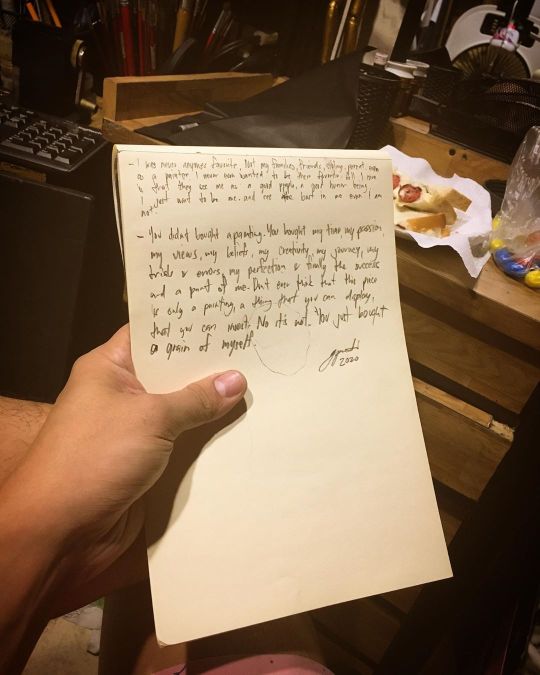 - I was never anyones favorite. Not my families, friends, sibling, parent even
as a painter, I never even wanted to be their favorite. All I care
is that they see me as a good people, a good human being.
I just want to be me. and see the best in me even I am
not.
- You didnt bought a painting. You bought my time my passion
my views, my beliefs, my creativity, my journey, my
trials & errors, my perfection & finally the success
and a part of me. Dont ever think that this piece
is only a painting, a thing that you can display,
that you can invest. No its not. You just bought
a grain of myself.
2020